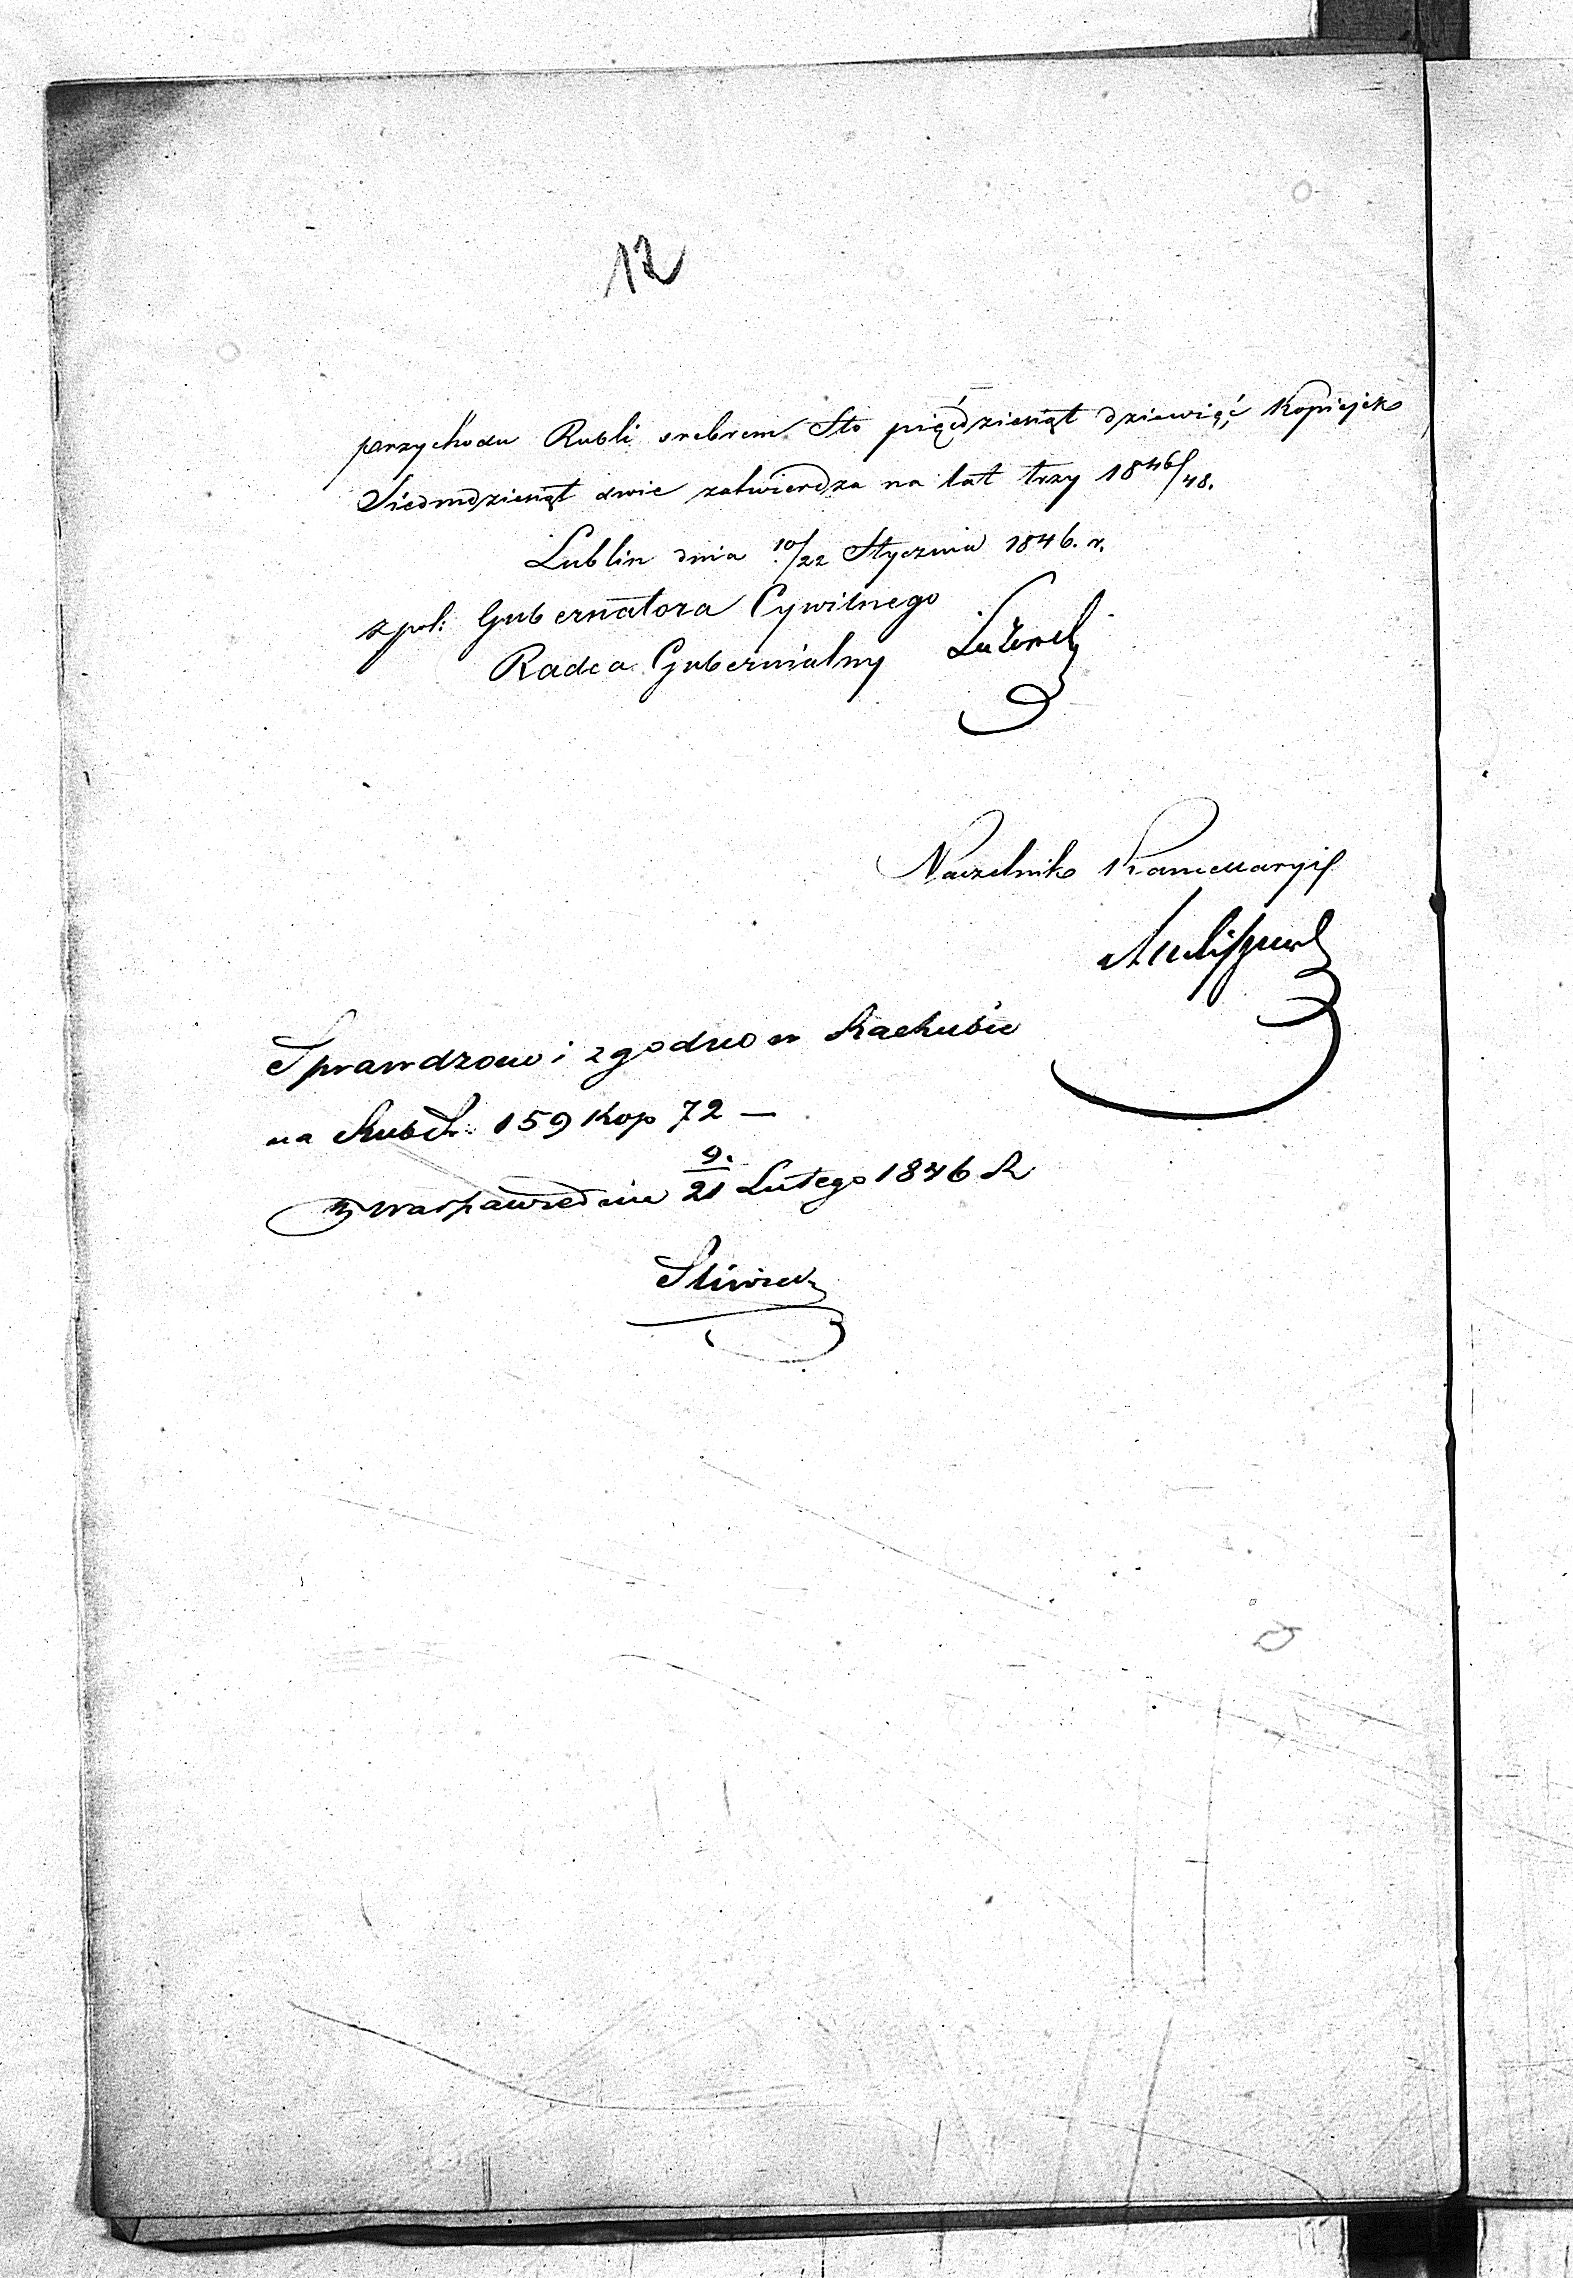 12
przychodu Rubli srebrem Sto pięćdziesiąt dziewięć Kopiejek
Siedmdziesiąt dwie zatwierdza na lat trzy 1846/48.
Lublin dnia 10/22 Stycznia 1846. r.
z pol: Gubernatora Cywilnego
Radca Gubernialny
Naczelnik Kancellaryi
Sprawdzono i zgodno w Rachubie
na Rub Sr: 159 Kop 72 —
w Warszawie dnia 9/21 Lutego 1846 R